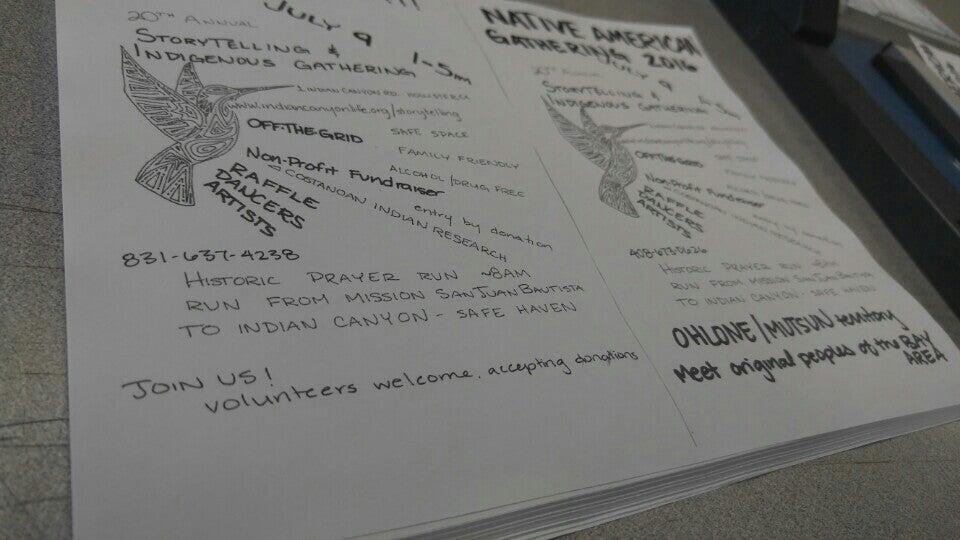 JULY 9
20TH ANNUAL
STORYTELLING &
INDIGENOUS GATHERING 1-5PM
1 INDIAN CANYON RD. HOLLISTER CA
www.indiancanyonlife.org/storytelling
OFF-THE-GRID SAFE SPACE
FAMILY FRIENDLY
Non-Profit Fundraiser ALCOHOL/DRUG FREE
COSTANOAN INDIAN RESEARCH
RAFFLE
DANCERS
ARTISTS
entry by donation
831-637-4238
HISTORIC PRAYER RUN ~8AM
RUN FROM MISSION SAN JUAN BAUTISTA
TO INDIAN CANYON - SAFE HAVEN
JOIN US!
volunteers welcome. accepting donations
NATIVE AMERICAN
GATHERING 2016
JULY 9
20TH ANNUAL
STORYTELLING &
INDIGENOUS GATHERING
OFF-THE-GRID SAFE SPACE
FAMILY FRIENDLY
Non-Profit Fundraiser
RAFFLE
DANCERS
ARTISTS
408-673-0626
HISTORIC PRAYER RUN ~8AM
RUN FROM MISSION SAN JUAN BAUTISTA
TO INDIAN CANYON - SAFE HAVEN
OHLONE/MUTSUN territory
Meet original peoples of the BAY
AREA